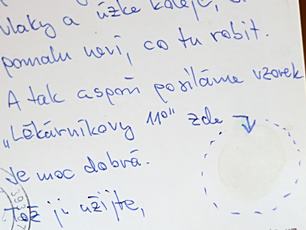 vlaky a úzké koleje,
pomalu neví, co tu robit.
A tak aspoň posíláme vzorek
„Lékárníkovy 11°" zde
Je moc dobrá.
Tož ji užijte,